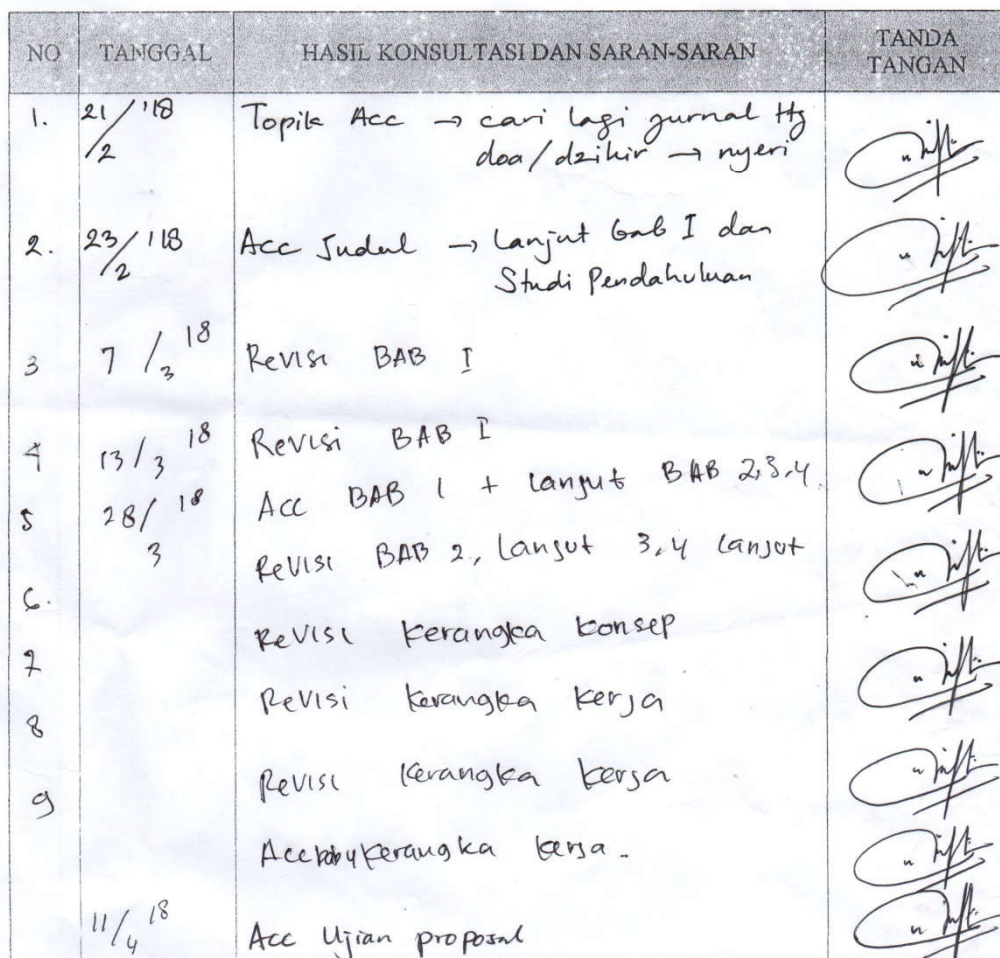 NO TANGGAL HASIL KONSULTASI DAN SARAN-SARAN TANDA TANGAN
1. 21/2 '18 Topik Acc → cari lagi jurnal ttg
doa/dzikir → nyeri
2. 23/2 '18 Acc Judul → Lanjut bab I dan
Studi Pendahuluan
3 7/3 18 Revisi BAB I
4 13/3 18 Revisi BAB I
5 28/3 18 Acc BAB 1 + Lanjut BAB 2,3,4
Revisi BAB 2, Lanjut 3,4 Lanjut
6.
Revisi kerangka konsep
7
Revisi kerangka kerja
8
Revisi kerangka kerja
9
Acc kerangka kerja.
11/4 18 Acc Ujian proposal